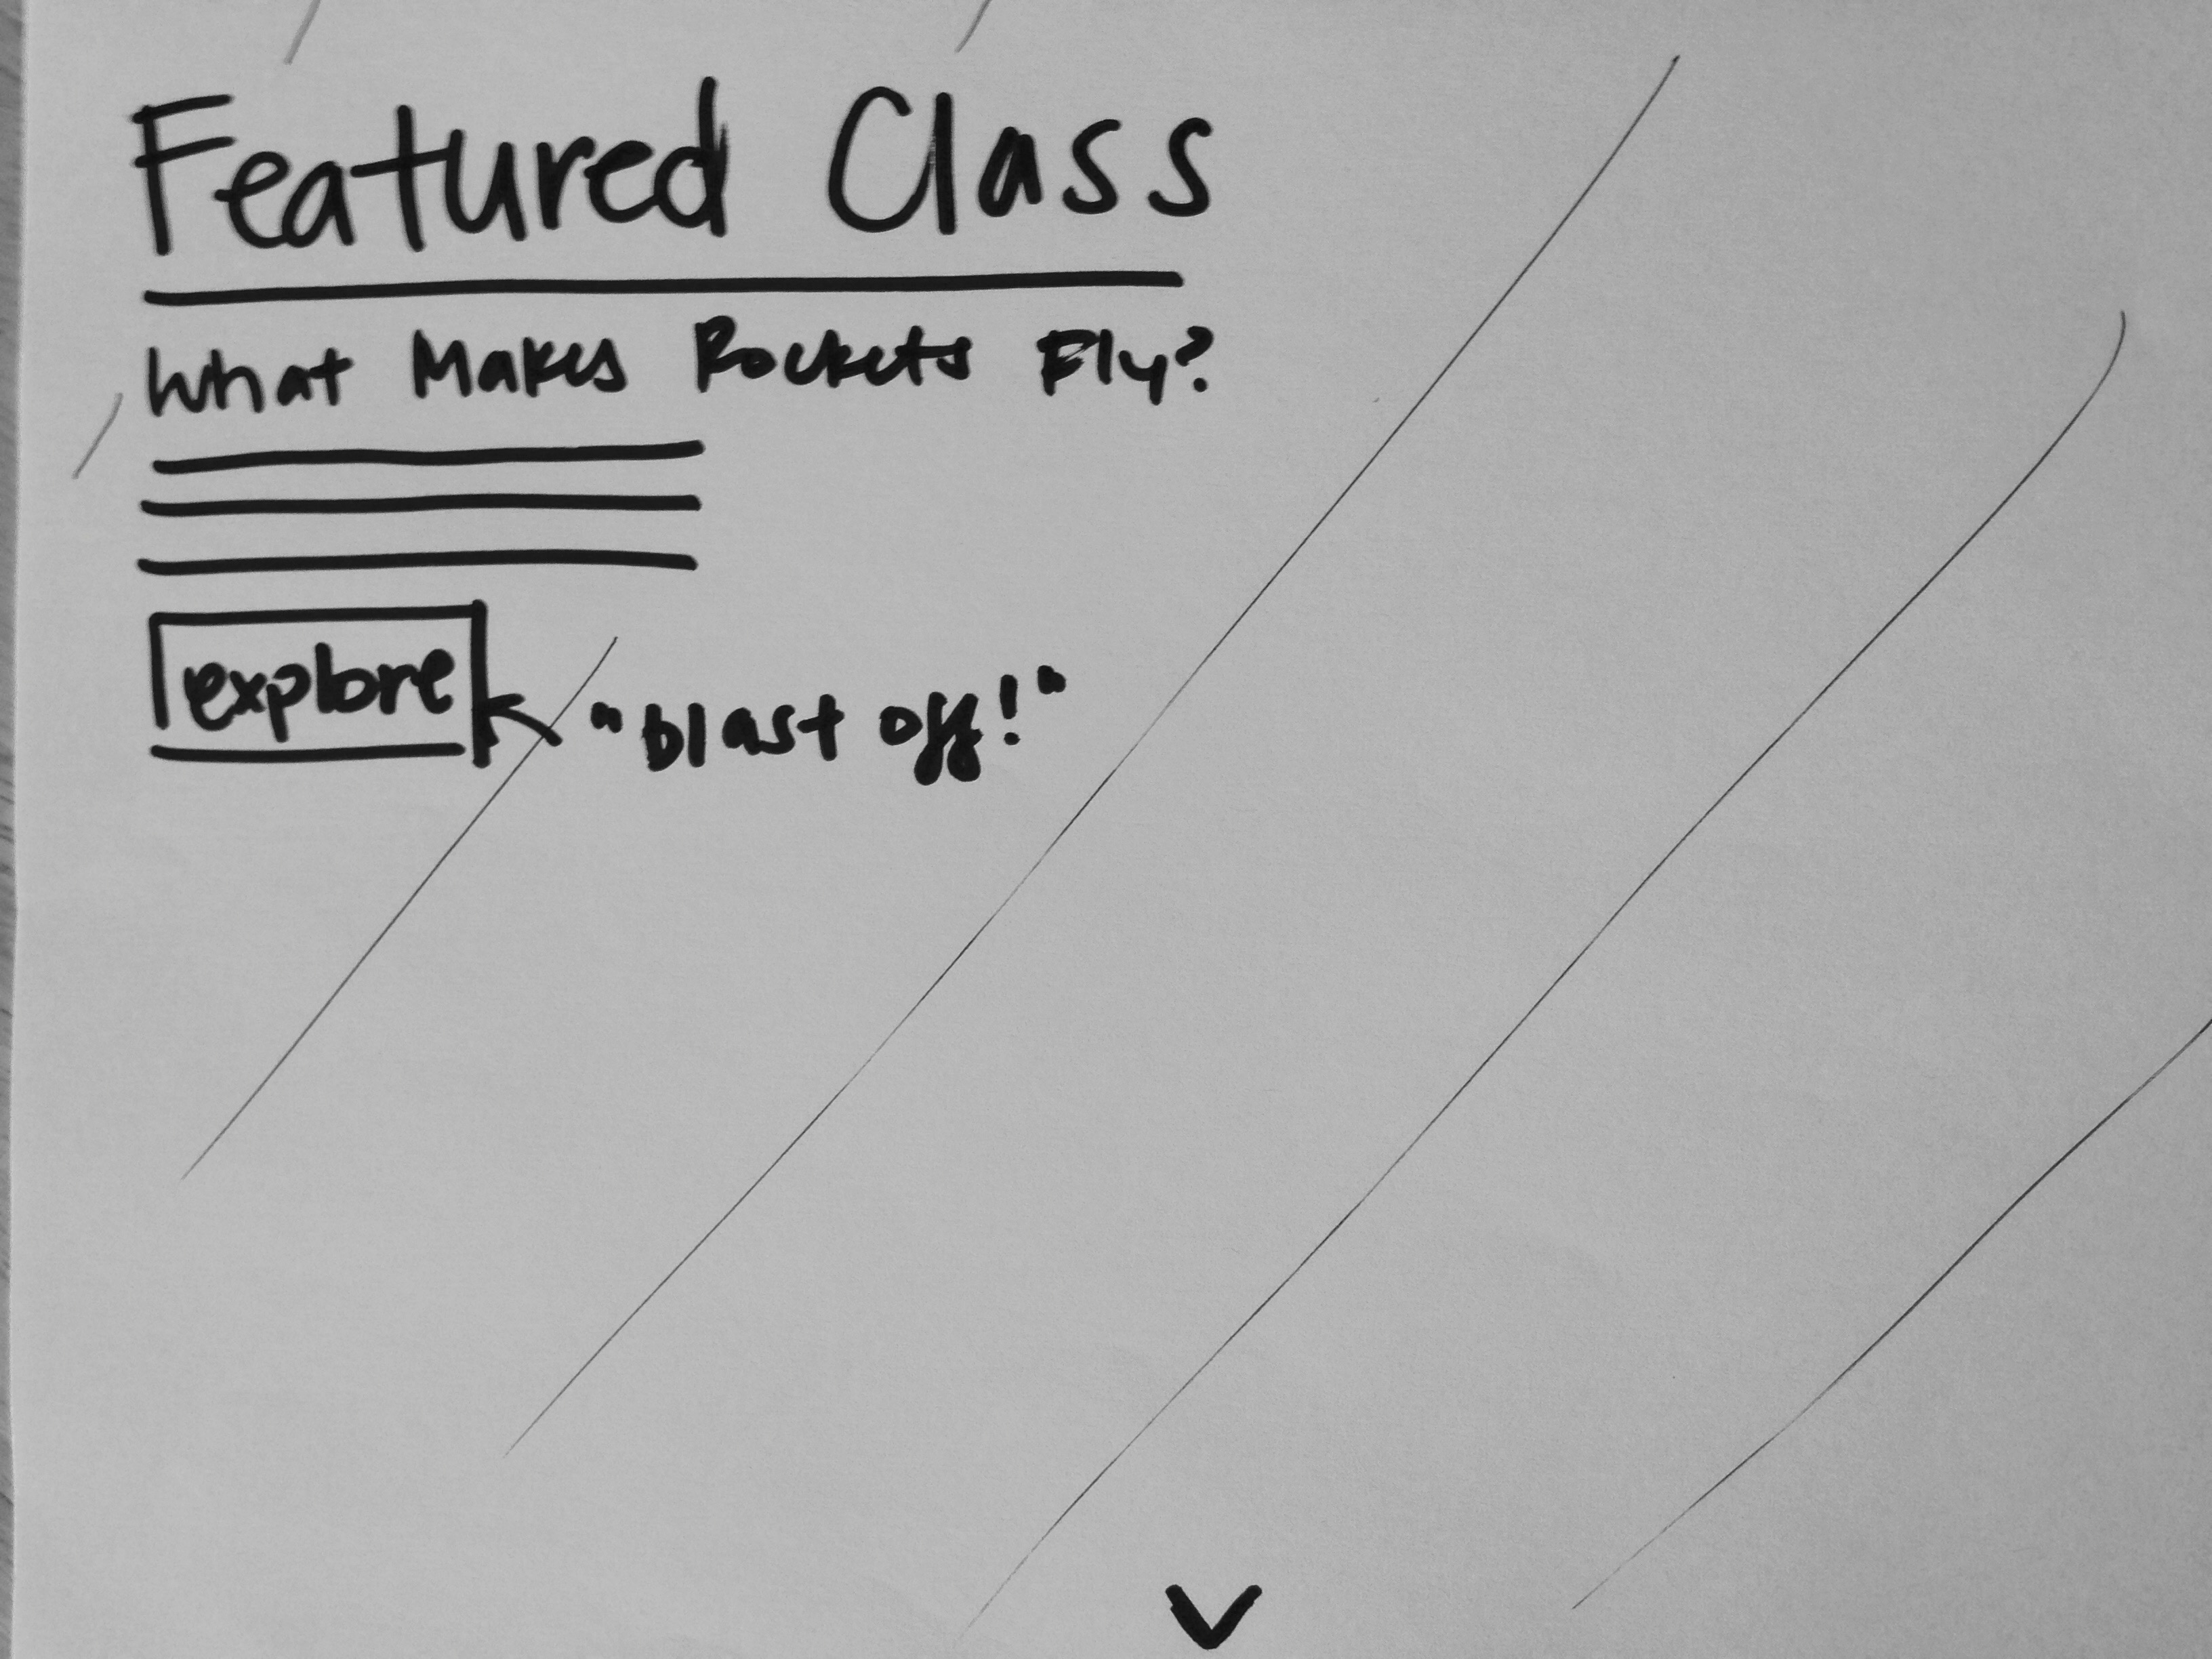 Featured Class
What Makes Rockets Fly?
explore
"blast off!"